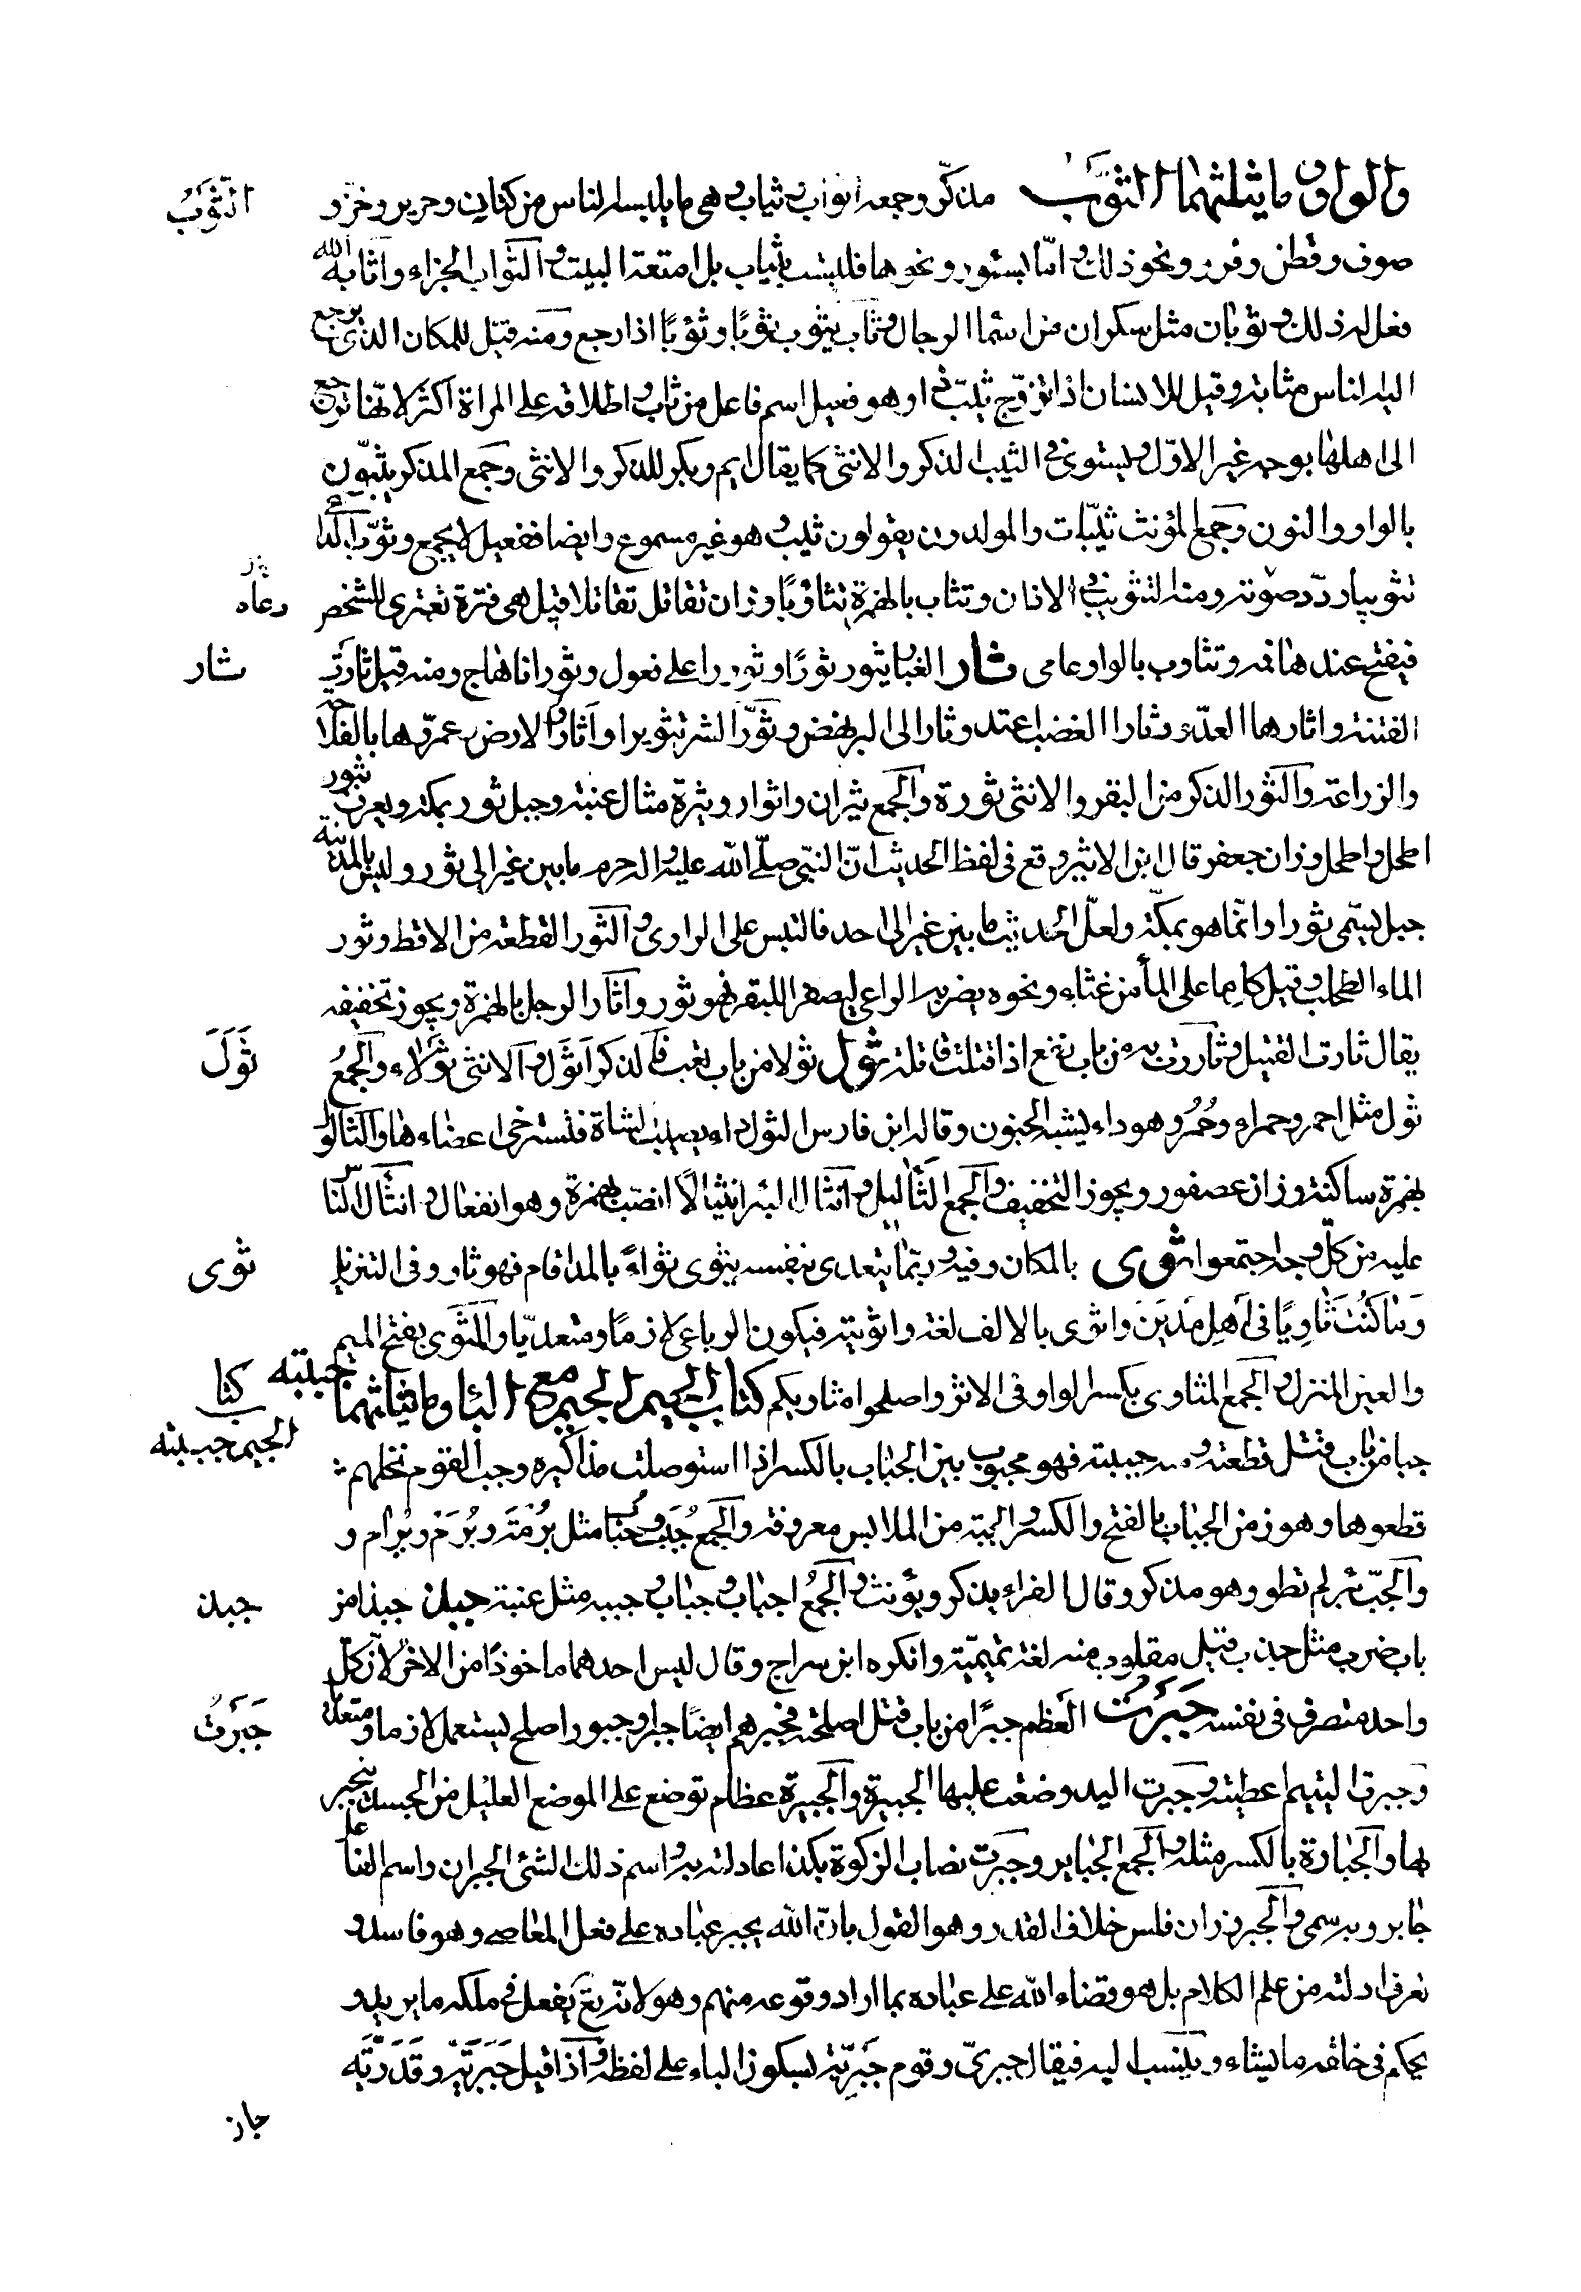 والواو وما يثلثهما الثوب مذكر وجمعه اثواب وثياب وهي ما يلبسه الناس من كتان وحرير وخز و
صوف وقطن وفرو ونحو ذلك واما الستور ونحوها فليست بثياب بل امتعة البيت والثواب الجزاء واثابه الله
فعل له ذلك وثوبان مثل سكران من اسماء الرجال وثاب يثوب ثوبًا وثؤبًا اذا رجع ومنه قيل للمكان الذي يرجع
اليه الناس مثابة وقيل للانسان اذا تزوج ثيب وهو فعيل اسم فاعل من ثاب واطلاقه على المراة اكثر لانها ترجع
الى اهلها بوجه غير الاول ويستوي في الثيب الذكر والانثى كما يقال ايم وبكر للذكر والانثى وجمع المذكر ثيبون
بالواو والنون وجمع المؤنث ثيبات والمولدون يقولون ثيب وهو غير مسموع وايضا ففعيل لا يجمع وثوب الدا
تثويبا ردد صوته ومنه التثويب في الاذان وتثاب بالهمزة تثاؤبًا وزان تقاتل تقاتلا قيل هي فترة تعتري الشخص
فيفتح عندها فمه وتثاوب بالواو عامي ثار الغبار يثور ثورًا وثورا على فعول وثورانا هاج ومنه قيل ثارت
الفتنة واثارها العدو وثار الغضب احتد وثار الى الشر نهض وثور الشر تثويرا واثاروا الارض عمروها بالفلاحة
والزراعة والثور الذكر من البقر والانثى ثورة والجمع ثيران واثوار وثيرة مثال عنبة وجبل ثور بمكة ويعرف بثور
اطحل واطحل وزان جعفر قال ابن الاثير وقع في لفظ الحديث ان النبي صلى الله عليه واله حرم ما بين عير الى ثور وليس بالمدينة
جبل يسمى ثورا وانما هو بمكة ولعل الحديث ما بين عير الى احد فالتبس على الراوي والثور القطعة من الاقط وثور
الماء الطحلب وقيل كل ما على الماء من غثاء ونحوه يضربه الراعي ليصفو للبقر فهو ثور واثار الرجل بالهمزة ويجوز تخفيفه
يقال ثارت القتيل وثارت به من باب نفع اذا قتلت قاتله ثول ثولا من باب تعب فالذكر اثول والانثى ثولاء والجمع
ثول مثل احمر وحمراء وحُمُر وهو داء يشبه الجنون وقال ابن فارس الثول داء يصيب الشاة فتسترخي اعضاءها والثالول
بهمزة ساكنة وزان عصفور ويجوز التخفيف والجمع الثاليل وانثال البر انثيالًا انصب بمرة وهو انفعال وانثال الناس
عليه من كل وجه اجتمعوا ثوى بالمكان وفيه وربما يتعدى بنفسه يثوي ثواءً بالمد اقام فهو ثاو وفي التنزيل
وَمَا كُنتَ ثَاوِيًا فِي اَهلِ مَدْيَنَ واثوى بالالف لغة واثويته فيكون الرباعي لازمًا ومتعديًا والمثوى بفتح الميم
والعين المنزل والجمع المثاوي بكسر الواو وفي الاثر واصلحوا مثاويكم كتاب الجيم الجيم مع الباء وما يثلثهما جببته
جبا من باب قتل قطعته ومنه جببته فهو مجبوب بين الجباب بالكسر اذا استوصلت مذاكيره وجب القوم نخلهم
قطعوها وهو زمن الجباب بالفتح والكسر والجبة من الملابس معروفة والجمع جُبَب وجباب مثل بُرْمَة وبُرَم وبِرام و
والجب بئر لم تطو وهو مذكر وقال الفراء يذكر ويؤنث والجمع اجباب وجباب وجببه مثل عنبة جبذ جبذا من
باب ضرب مثل جذب قيل مقلوب منه لغة تميمية وانكره ابن سراج وقال ليس احدهما ماخوذًا من الاخر لان كل
واحد متصرف في نفسه جبرت العظم جبرًا من باب قتل اصلحته فجبر هو ايضًا جبرا وجبورا صلح يستعمل لازما ومتعديا
وجبرت اليتيم اعطيته وجبرت اليد وضعت عليها الجبيرة والجبيرة عظام توضع على الموضع العليل من الجسد ينجبر
بها والجبارة بالكسر مثله والجمع الجباير وجبرت نصاب الزكوة بكذا عادلته به واسم ذلك الشئ الجبران واسم الفاعل
جابر وبه سمي والجبر وزان فلس خلاف القدر وهو القول بان الله يجبر عباده على فعل المعاصي وهو فاسد و
تعرف ادلته من علم الكلام بل هو قضاء الله على عباده بما اراد وقوعه منهم وهو لانه تع يفعل في ملكه ما يريد و
يحكم في خلقه ما يشاء وينسب اليه فيقال جبريّ وقوم جَبْرِيّة بسكون الباء على لفظه واذا قيل جَبَريّة وقَدَريّة
جاز
الثوب
دعاه
ثار
ثَوَلَ
ثوى
كتاب
الجيم جببته
جبذ
جَبَرتُ